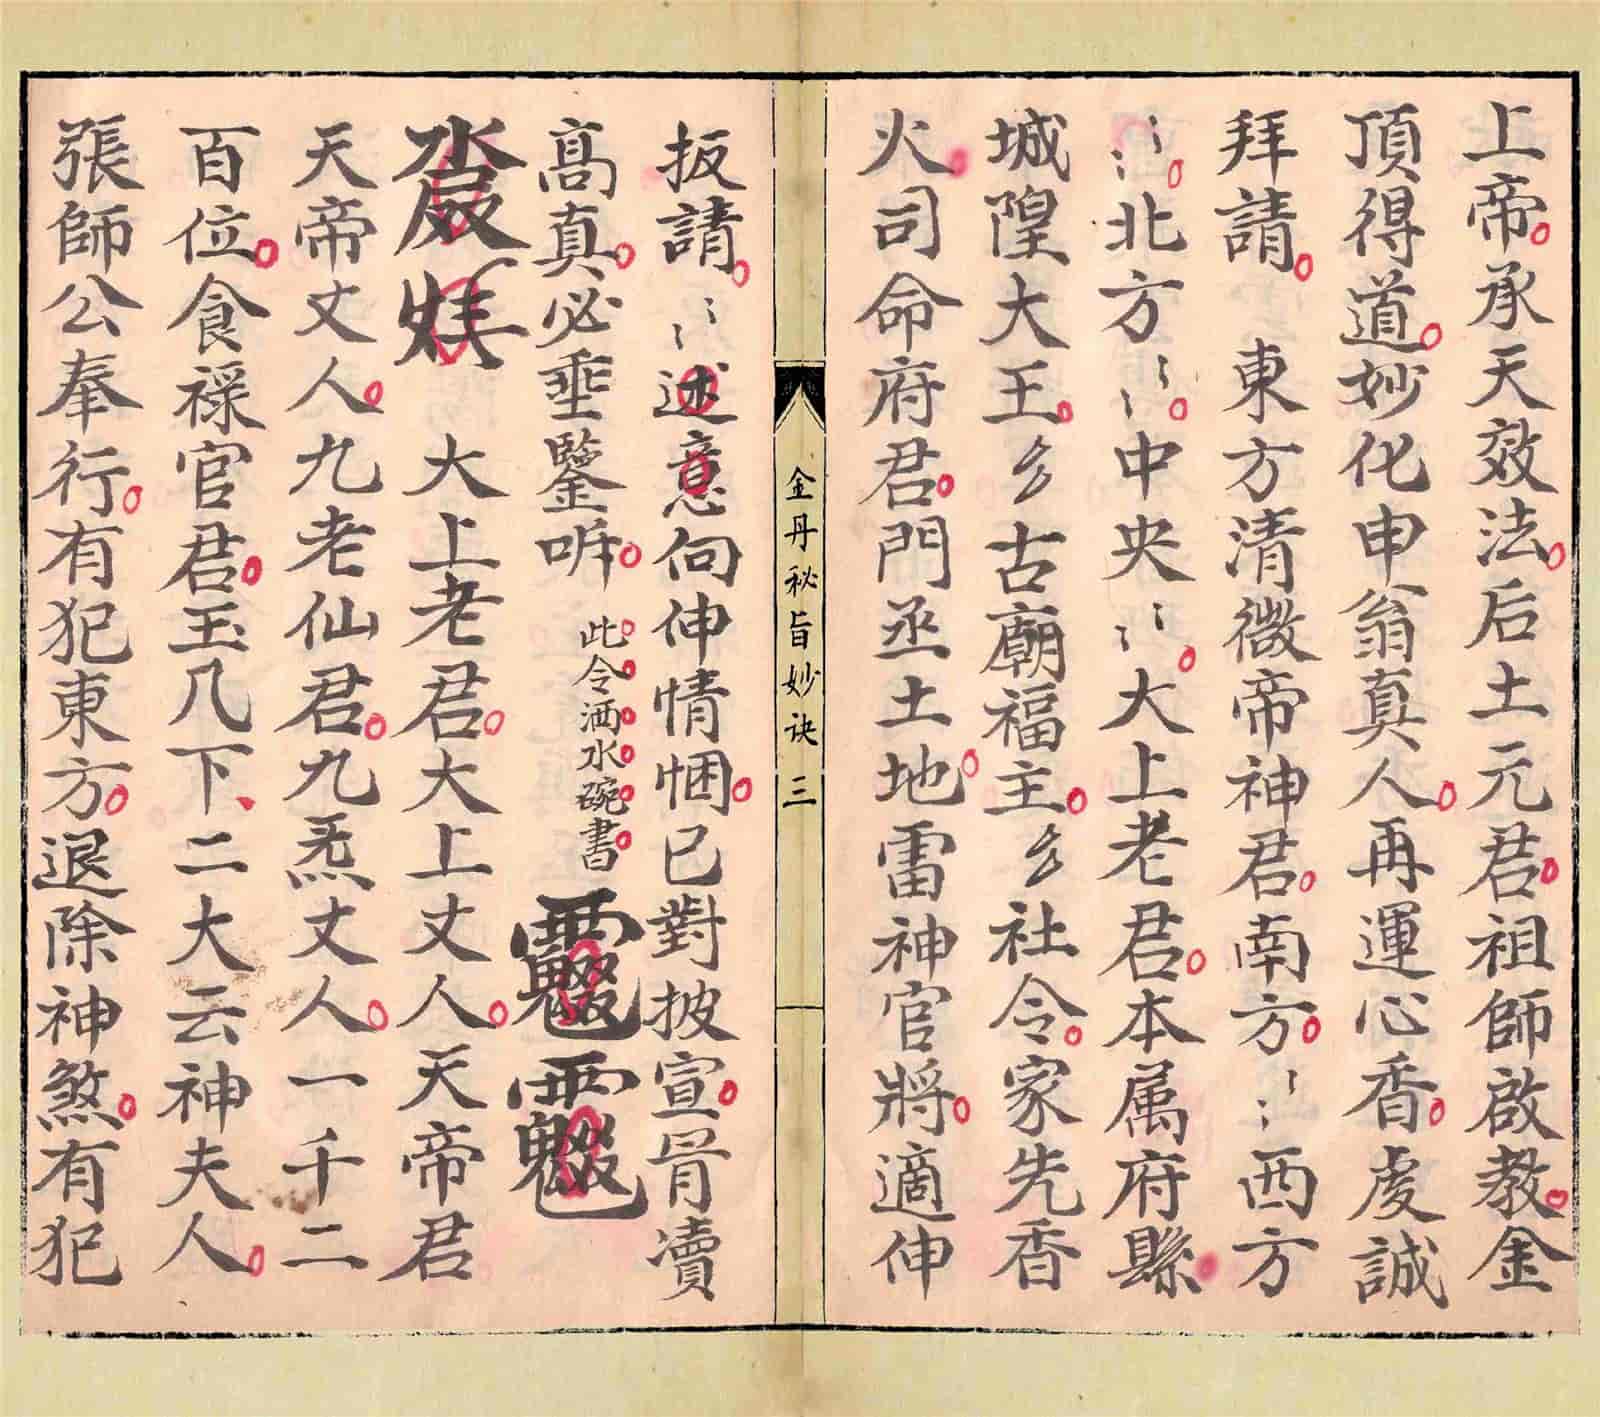 上帝承天效法后土元君祖師啟教金
頂得道妙化申翁真人再運心香虔誠
拜請 東方清微帝神君南方〻〻西方
〻〻北方〻〻中央〻〻大上老君本属府縣
城隍大王厶厶古廟福主厶厶社令家先香
火司命府君門丞土地雷神官將適伸
金丹秘旨妙诀 三
扳請〻〻述意向伸情悃已對披宣骨瀆
高真必垂鑒听 此令洒水碗書
大上老君大上丈人天帝君
天帝丈人九老仙君九炁丈人一千二
百位食禄官君玉几下二大云神夫人
張師公奉行有犯東方退除神煞有犯